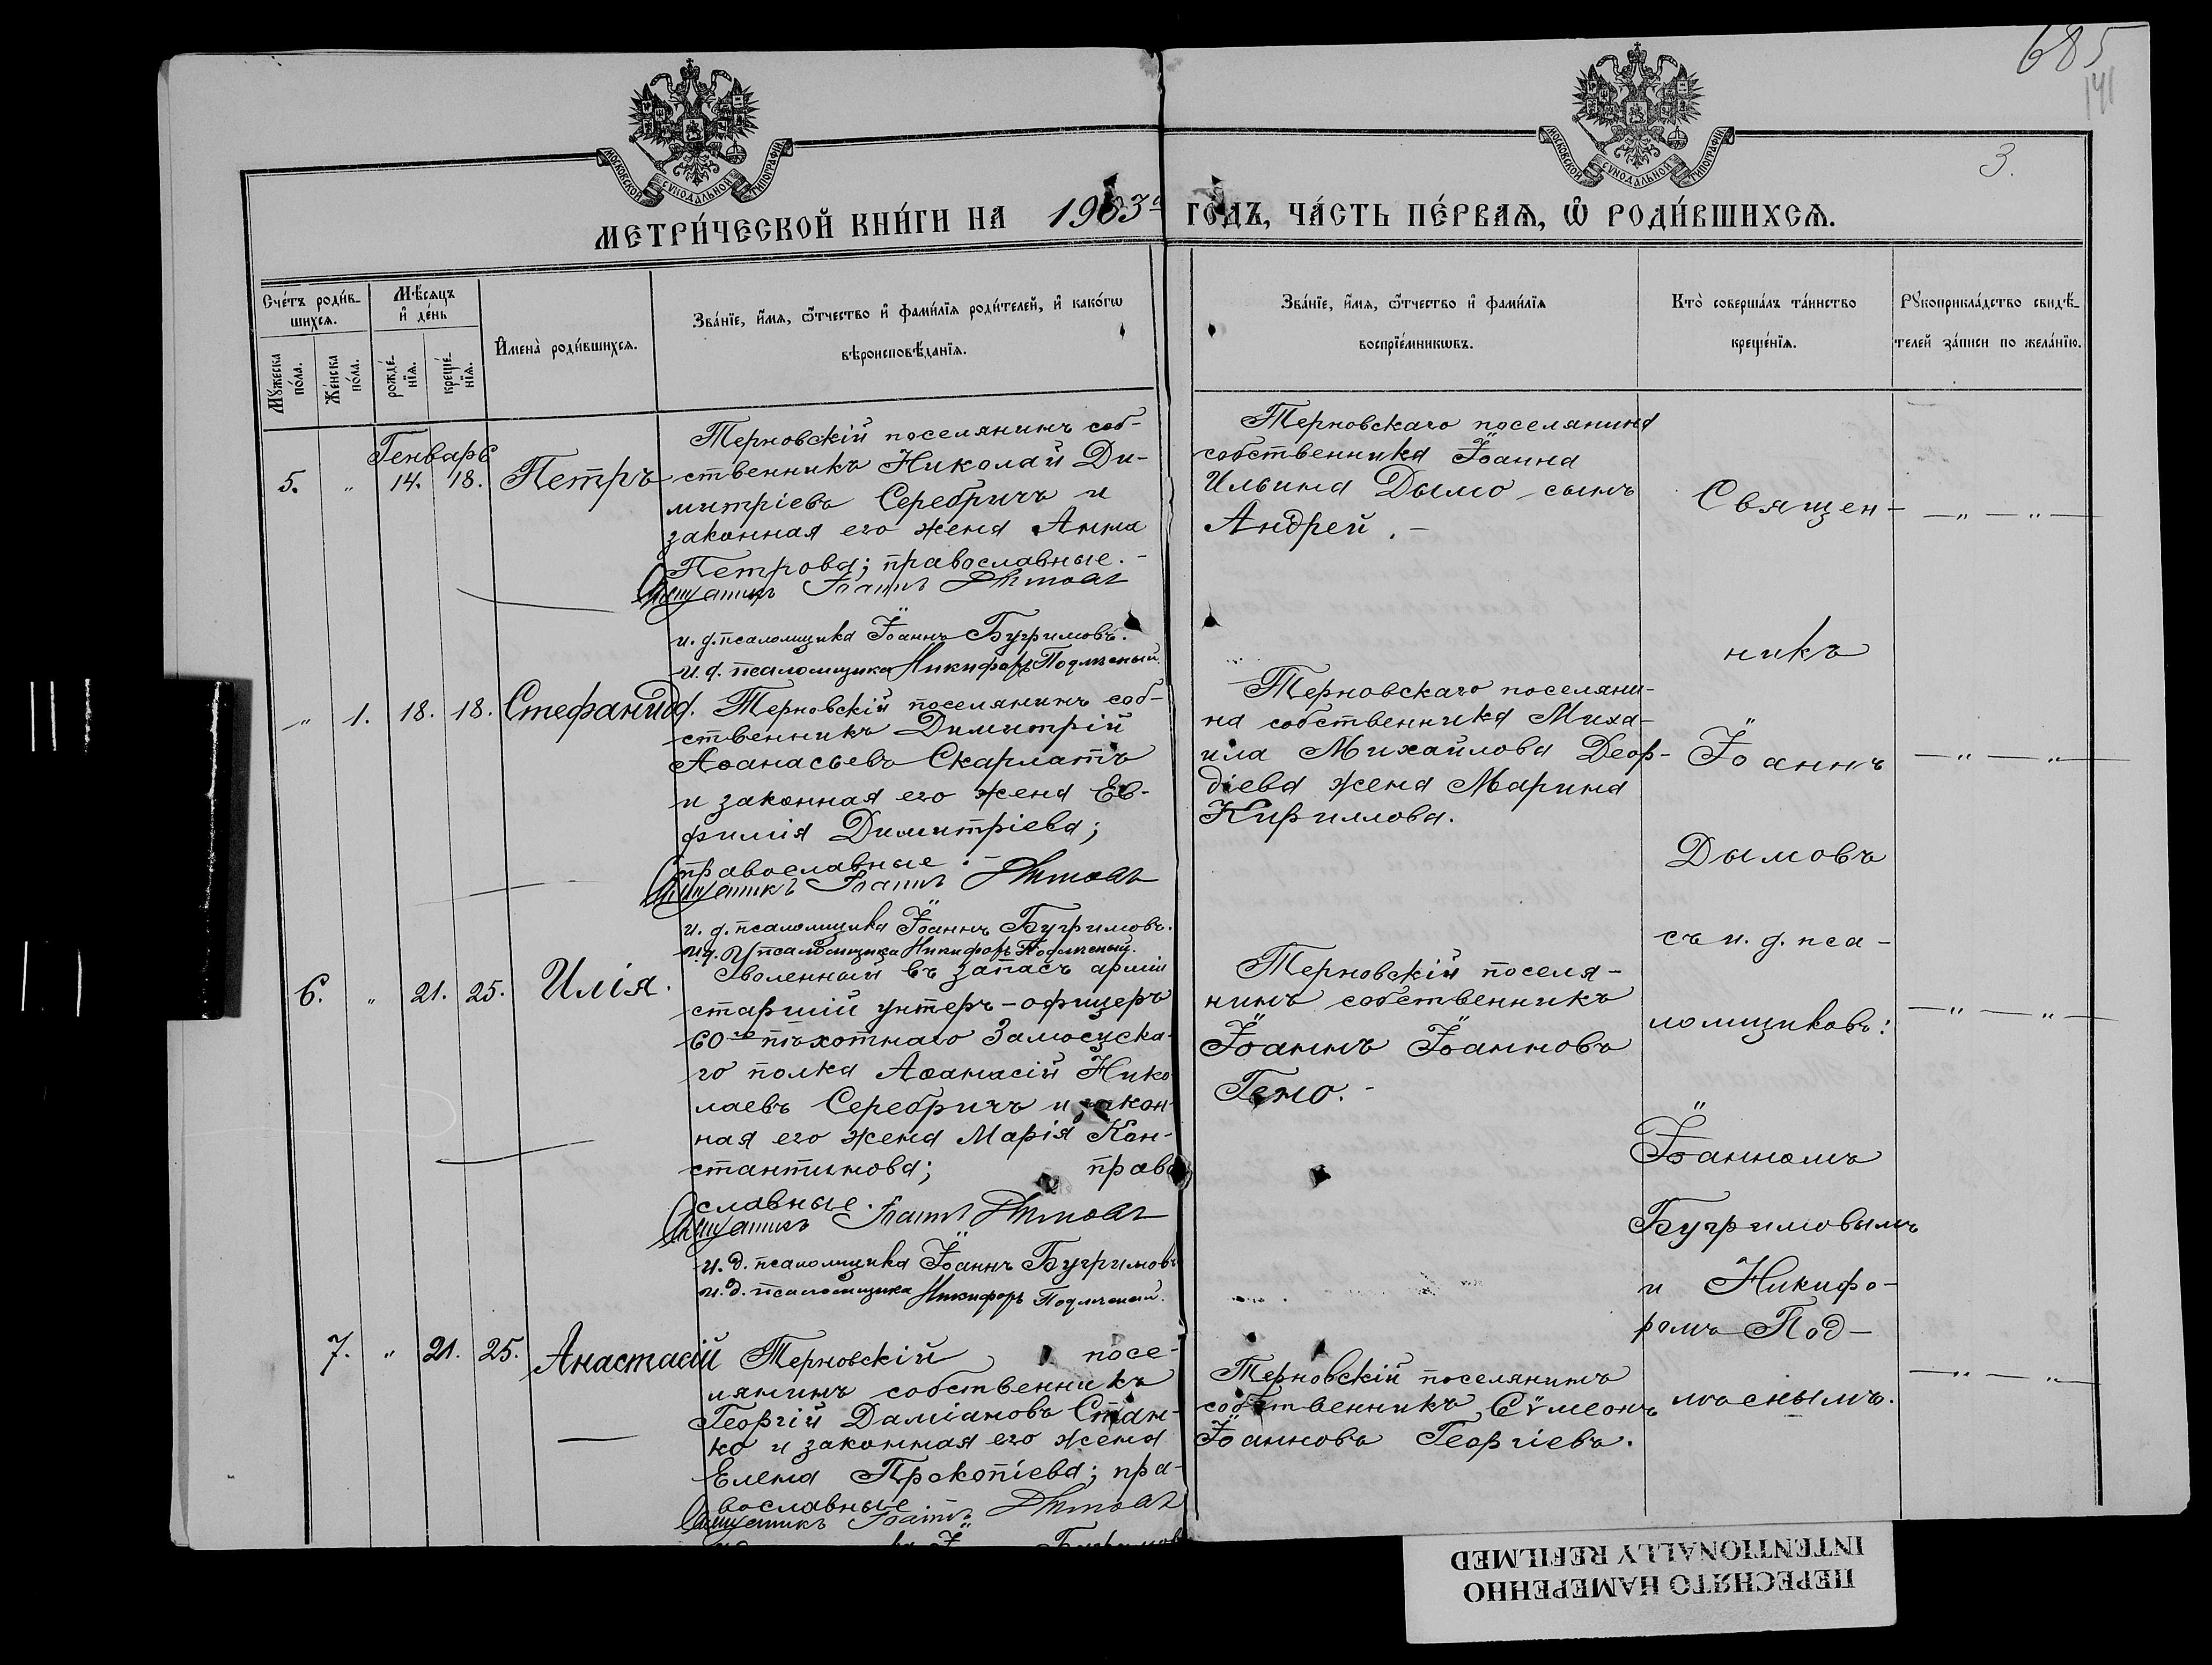 685
141
3.
МОСКОВСКОЙ СѴНОДАЛЬНОЙ ТИПОГРАФІИ
МОСКОВСКОЙ СѴНОДАЛЬНОЙ ТИПОГРАФІИ
МЕТРИ́ЧЕСКОЙ КНИ́ГИ НА 1903 го́дъ, ча́сть пе́рвая, ѡ҆ роди́вшихся.
Сче́тъ роди́в-
шихся.
Му́жеска
по́ла.
Же́нска
по́ла.
Мѣ́сяцъ
и҆ де́нь
рожде́-
нїя.
креще́-
нїя.
И҆мена̀ роди́вшихся.
Зва́нїе, и҆́мя, ѻ҆́тчество и҆ фами́лїя роди́телей, и҆ како́гѡ
вѣроисповѣ́данїя.
Зва́нїе, и҆́мя, ѻ҆́тчество и҆ фами́лїя
воспрїе́мникѡвъ.
Кто̀ соверша́лъ та́инство
креще́нїя.
Рꙋкоприкла́дство свидѣ́-
телей за́писи по жела́нїю.
Генварь
5. " 14. 18. Петръ
Терновскій поселянинъ соб-
ственникъ Николай Ди-
митріевъ Серебричъ и
законная его жена Анна
Петрова; православные.-
Священникъ Іоаннъ Дымовъ
и. д. псаломщика Іоаннъ Бугримовъ.
и. д. псаломщика Никифоръ Подлѣсный.
Терновскаго поселянина
собственника Іоанна
Ильина Дымо сынъ
Андрей.-
" 1. 18. 18. Стефанида.
Терновскій поселянинъ соб-
ственникъ Димитрій
Аѳанасьевъ Скарлатъ
и законная его жена Ев-
фимія Димитріева;
православные.-
Священникъ Іоаннъ Дымовъ
и. д. псаломщика Іоаннъ Бугримовъ.
и. д. псаломщика Никифоръ Подлѣсный.
Терновскаго поселяни-
на собственника Миха-
ила Михайлова Деор-
діева жена Марина
Кириллова.
6. " 21. 25. Илія.
Уволенный въ запасъ арміи
старшій унтеръ-офицеръ
60го пѣхотнаго Замосцска-
го полка Аѳанасій Нико-
лаевъ Серебричъ и закон-
ная его жена Марія Кон-
стантинова; право
славные.
Священникъ Іоаннъ Дымовъ
и. д. псаломщика Іоаннъ Бугримовъ
и. д. псаломщика Никифоръ Подлѣсный.
Терновскій поселя-
нинъ собственникъ
Іоаннъ Іоанновъ
7. " 21. 25. Анастасій
Терновскій посе-
лянинъ собственникъ
Георгій Даміановъ Стан-
ко и законная его жена
Елена Прокопіева; пра-
вославные.-
Священникъ Іоаннъ Дымовъ
Терновскій поселянинъ
собственникъ Сѵмеонъ
Іоанновъ Георгіевъ.
Священ-
никъ
Іоаннъ
Дымовъ
съ и. д. пса-
ломщиковъ:
Іоанномъ
Бугримовымъ
и Никифо-
ромъ Под-
лѣснымъ.
ПЕРЕСНЯТО НАМЕРЕННО
INTENTIONALLY REFILMED